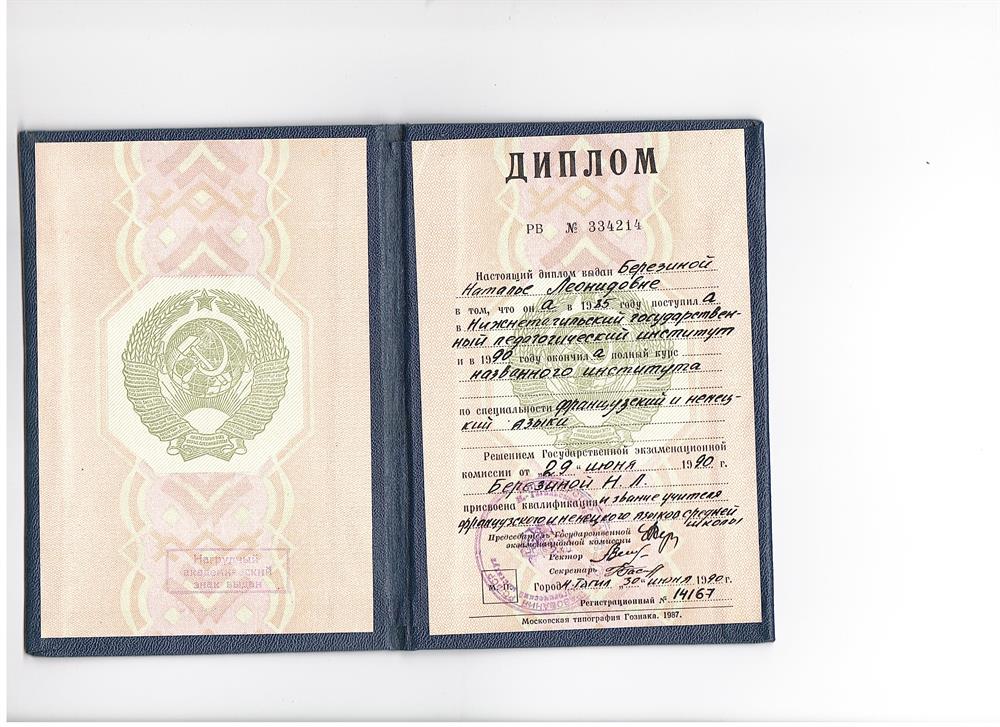 Нагрудный
академический
знак выдан
ДИПЛОМ
РВ № 334214
Настоящий диплом выдан Березиной
Наталье Леонидовне
в том, что он а в 1985 году поступил а
в Нижнетагильский государствен-
ный педагогический институт
и в 1990 году окончил а полный курс
названного института
по специальности французский и немец-
кий языки
Решением Государственной экзаменационной
комиссии от „29“ июня 1990 г.
Березиной Н. Л.
присвоена квалификация и звание учителя
французского и немецкого языков средней
школы
Председатель Государственной
экзаменационной комиссии
Ректор
Секретарь
М. П. Город Н-Тагил „30“ июня 1990 г.
Регистрационный № 14167
Московская типография Гознака. 1987.